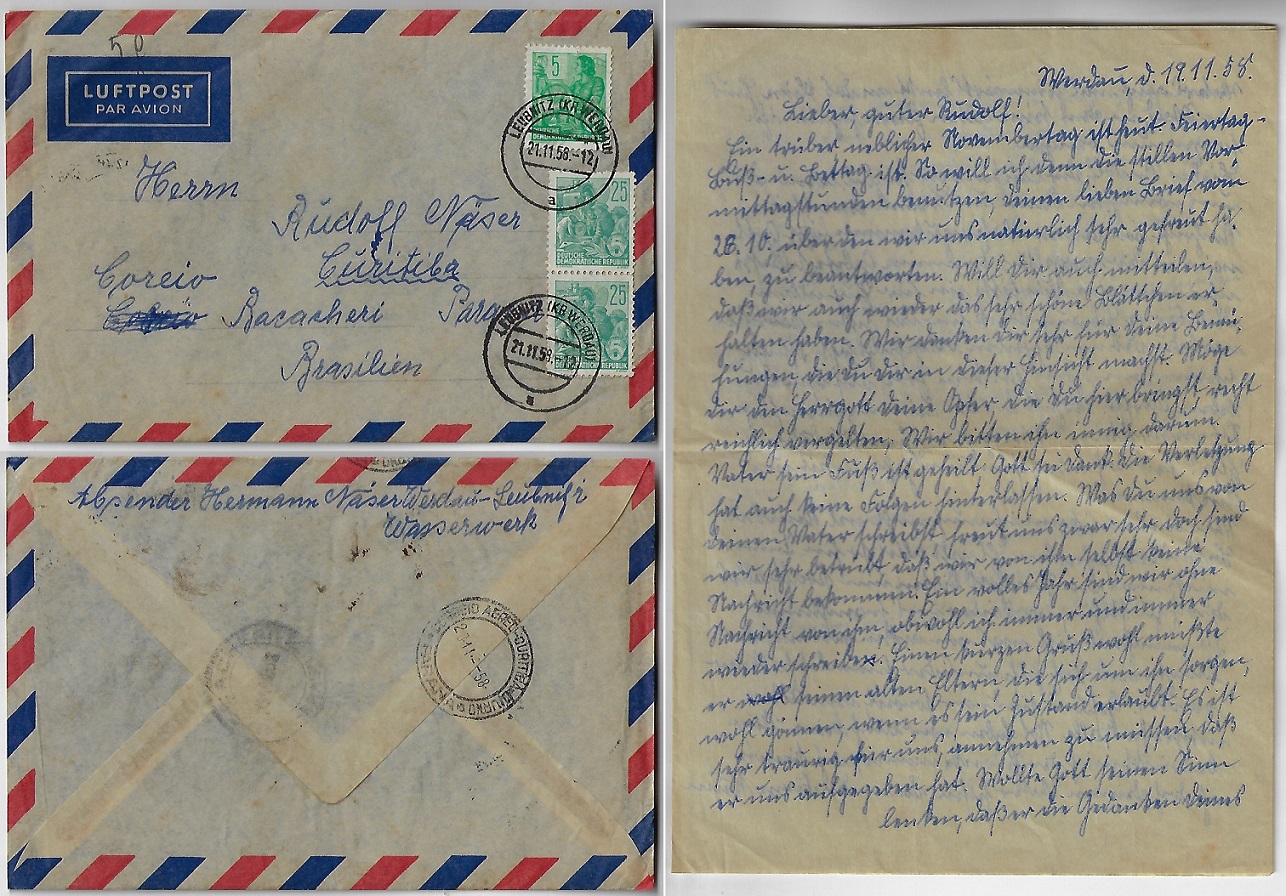 50
LUFTPOST
PAR AVION
5
DEUTSCHE
DEMOKRATISCHE REPUBLIK
LEUBNITZ (KR. WERDAU)
21.11.58.-12
a
25
DEUTSCHE
DEMOKRATISCHE REPUBLIK
25
DEMOKRATISCHE REPUBLIK
LEUBNITZ (KR. WERDAU)
21.11.58.-12
a
Herrn
Rudolf Näser
Curitiba
Coreio
Bacacheri Parana
Brasilien
Absender Hermann Näser Werdau-Leubnitz
Wasserwerk
CORREIO AEREO-CURITIBA
-11-58-
Werdau, d. 19.11.58.
Lieber, guter Rudolf!
Ein trüber neblicher Novembertag ist heut. Feiertag-
Buß- u. Bettag ist. So will ich denn die stillen Vor-
mittagstunden benutzen, Deinen lieben Brief vom
28.10. über den wir uns natürlich sehr gefreut ha-
ben, zu beantworten. Will Dir auch mitteilen,
daß wir auch wieder das sehr schöne Blättchen er-
halten haben. Wir danken Dir sehr für Deine Bemü-
hungen, die Du Dir in dieser Hinsicht machst. Möge
Dir der Herrgott Deine Opfer die Du hier bringst, recht
reichlich vergelten, Wir bitten ihn innig darum.
Vater sein Fuß ist geheilt Gott sei Dank. Die Verletzung
hat auch keine Folgen hinterlassen. Was Du uns von
Deinen Vater schreibst freut uns zwar sehr doch sind
wir sehr betrübt, daß wir von ihm selbst keine
Nachricht bekommen. Ein volles Jahr sind wir ohne
Nachricht von ihm, obwohl ich immer und immer
wieder schreibe. Einen kurzen Gruß wohl müßte
er seinen alten Eltern die sich um ihn sorgen,
wohl gönnen, wenn es sein Zustand erlaubt. Es ist
sehr traurig für uns, annehmen zu müssen, daß
er uns aufgegeben hat. Wollte Gott seinen Sinn
lenken, daß er die Gedanken Deines